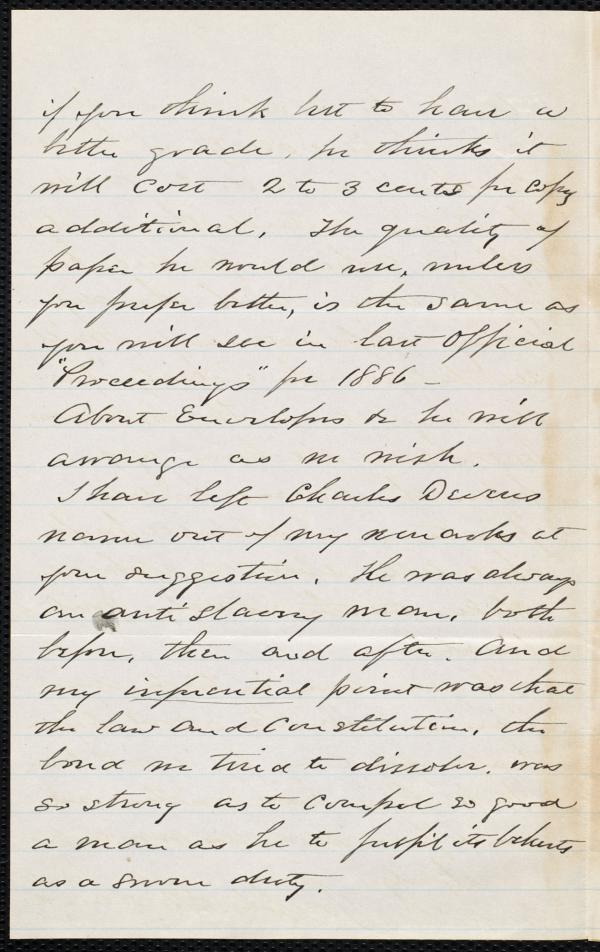 if you think best to have a
better grade, he thinks it
will cost 2 to 3 cents per copy
additional. The quality of
paper he would use, unless
you prefer better, is the same as
you will see in last Official
"Proceedings" for 1886 -
About Envelopes &c he will
arrange as we wish.
I have left Charles Devens
name out of my remarks at
your suggestion. He was always
an anti slavery man, both
before, then and after. And
my inferential point was that
the law and Constitution, the
bond we tried to dissolve, was
so strong as to compel so good
a man as he to fulfil its behests
as a sworn duty.